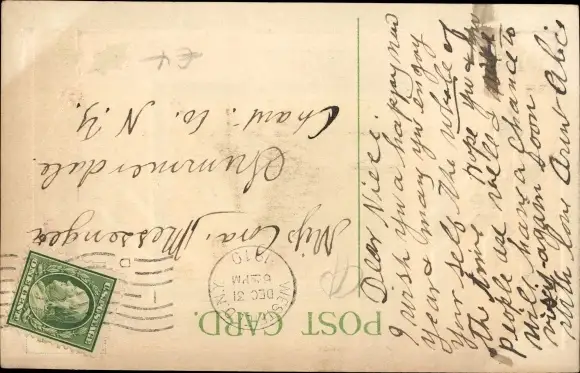 POST CARD.
WEST
DEC 31
6 30 PM
1910
N.Y.
Miss Cora. Messenger
Summerdale.
Chaut. Co. N.Y.
Dear Niece.
I wish you a happy new
year & may you enjoy
your self the whole of
the time hope you & your
people are well &
will have a chance to
visit again soon
With love Aunt Alice